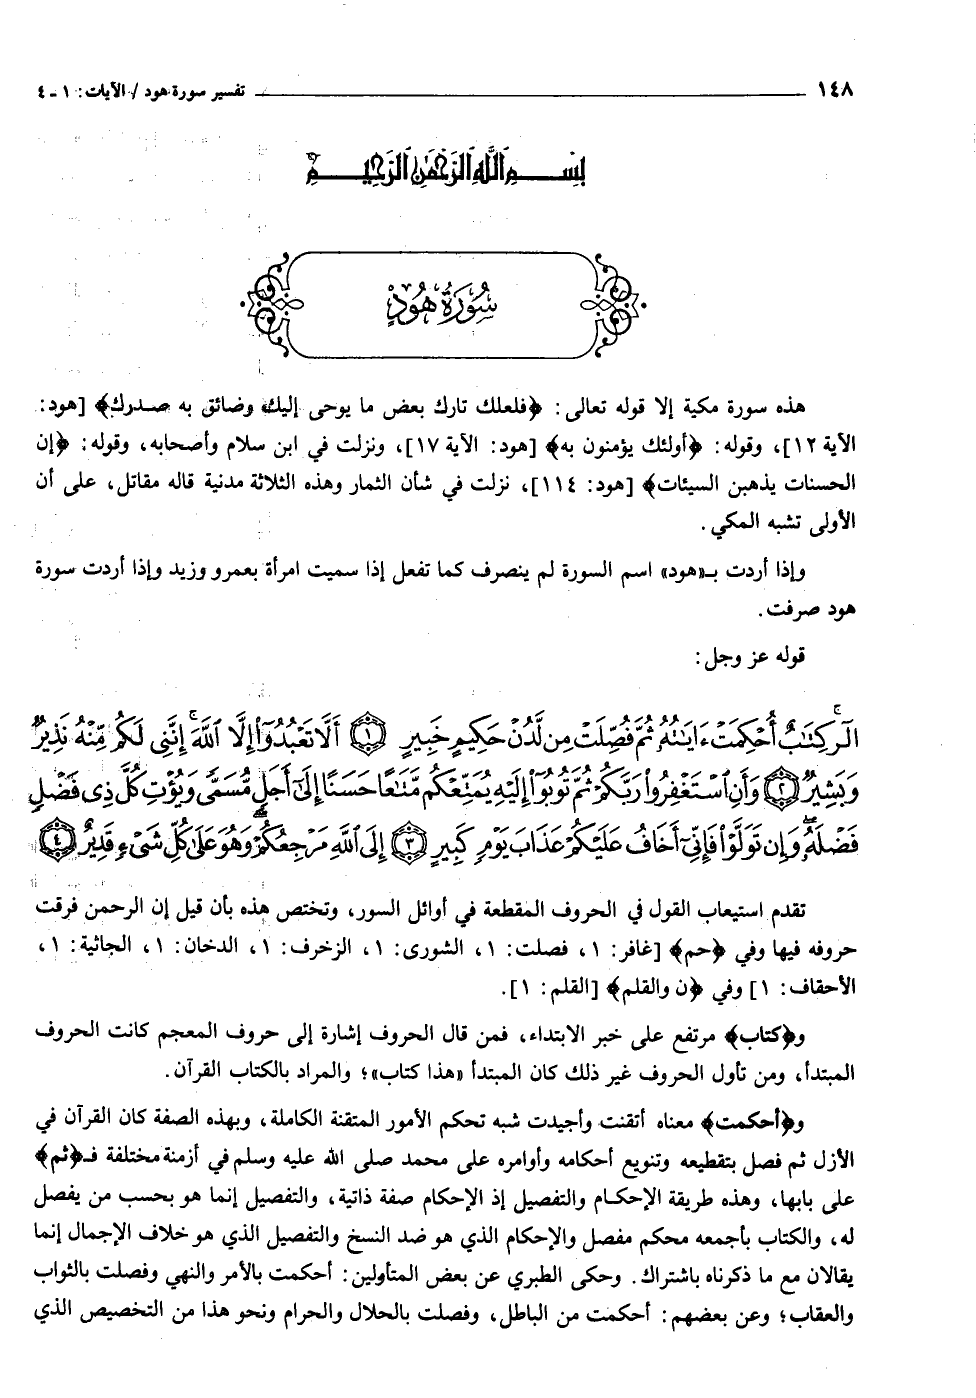 ١٤٨ تفسير سورة هود / الآيات: ١ - ٤
بِسْمِ اللَّهِ الرَّحْمَنِ الرَّحِيمِ
سُورَةُ هُودٍ
هذه سورة مكية إلا قوله تعالى: ﴿فلعلك تارك بعض ما يوحى إليك وضائق به صدرك﴾ [هود:
الآية ١٢]، وقوله: ﴿أولئك يؤمنون به﴾ [هود: الآية ١٧]، ونزلت في ابن سلام وأصحابه، وقوله: ﴿إن
الحسنات يذهبن السيئات﴾ [هود: ١١٤]، نزلت في شأن الثمار وهذه الثلاثة مدنية قاله مقاتل، على أن
الأولى تشبه المكي.
وإذا أردت بـ«هود» اسم السورة لم ينصرف كما تفعل إذا سميت امرأة بعمرو وزيد وإذا أردت سورة
هود صرفت.
قوله عز وجل:
الٓرۚ كِتَٰبٌ أُحْكِمَتْ ءَايَٰتُهُۥ ثُمَّ فُصِّلَتْ مِن لَّدُنْ حَكِيمٍ خَبِيرٍ ﴿١﴾ أَلَّا تَعْبُدُوٓا۟ إِلَّا ٱللَّهَۚ إِنَّنِى لَكُم مِّنْهُ نَذِيرٌ
وَبَشِيرٌ ﴿٢﴾ وَأَنِ ٱسْتَغْفِرُوا۟ رَبَّكُمْ ثُمَّ تُوبُوٓا۟ إِلَيْهِ يُمَتِّعْكُم مَّتَٰعًا حَسَنًا إِلَىٰٓ أَجَلٍ مُّسَمًّى وَيُؤْتِ كُلَّ ذِى فَضْلٍ
فَضْلَهُۥۖ وَإِن تَوَلَّوْا۟ فَإِنِّىٓ أَخَافُ عَلَيْكُمْ عَذَابَ يَوْمٍ كَبِيرٍ ﴿٣﴾ إِلَى ٱللَّهِ مَرْجِعُكُمْۖ وَهُوَ عَلَىٰ كُلِّ شَىْءٍ قَدِيرٌ ﴿٤﴾
تقدم استيعاب القول في الحروف المقطعة في أوائل السور، وتختص هذه بأن قيل إن الرحمن فرقت
حروفه فيها وفي ﴿حم﴾ [غافر: ١، فصلت: ١، الشورى: ١، الزخرف: ١، الدخان: ١، الجاثية: ١،
الأحقاف: ١] وفي ﴿ن والقلم﴾ [القلم: ١].
و﴿كتاب﴾ مرتفع على خبر الابتداء، فمن قال الحروف إشارة إلى حروف المعجم كانت الحروف
المبتدأ، ومن تأول الحروف غير ذلك كان المبتدأ «هذا كتاب»؛ والمراد بالكتاب القرآن.
و﴿أحكمت﴾ معناه أتقنت وأجيدت شبه تحكم الأمور المتقنة الكاملة، وبهذه الصفة كان القرآن في
الأزل ثم فصل بتقطيعه وتنويع أحكامه وأوامره على محمد صلى الله عليه وسلم في أزمنة مختلفة فـ﴿ثم﴾
على بابها، وهذه طريقة الإحكام والتفصيل إذ الإحكام صفة ذاتية، والتفصيل إنما هو بحسب من يفصل
له، والكتاب بأجمعه محكم مفصل والإحكام الذي هو ضد النسخ والتفصيل الذي هو خلاف الإجمال إنما
يقالان مع ما ذكرناه باشتراك. وحكى الطبري عن بعض المتأولين: أحكمت بالأمر والنهي وفصلت بالثواب
والعقاب؛ وعن بعضهم: أحكمت من الباطل، وفصلت بالحلال والحرام ونحو هذا من التخصيص الذي